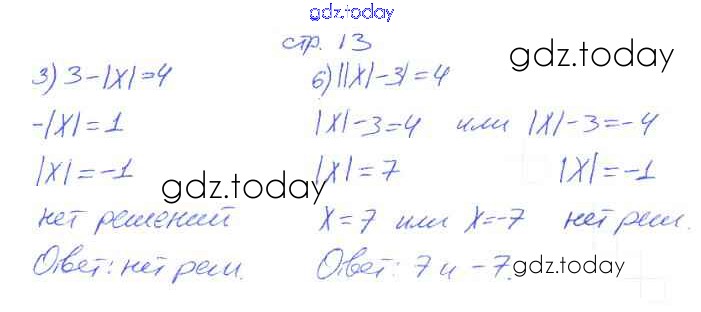 gdz.today
стр. 13
gdz.today
3) 3-|x|=4
-|x|=1
|x|=-1
нет решений
Ответ: нет реш.
6) ||x|-3|=4
|x|-3=4 или |x|-3=-4
|x|=7 |x|=-1
x=7 или x=-7 нет реш.
Ответ: 7 и -7.
gdz.today
gdz.today